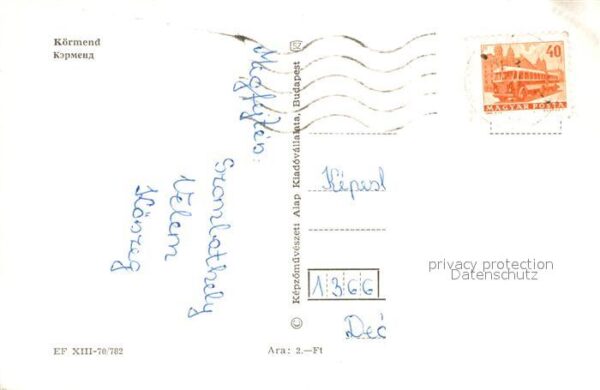 Körmend
Кэрменд
Megfejtés:
Szombathely
Velem
Kőszeg
© Képzőművészeti Alap Kiadóvállalata, Budapest
40
MAGYAR POSTA
Képest
1366
privacy protection
Datenschutz
EF XIII-70/782
Ara: 2.—Ft